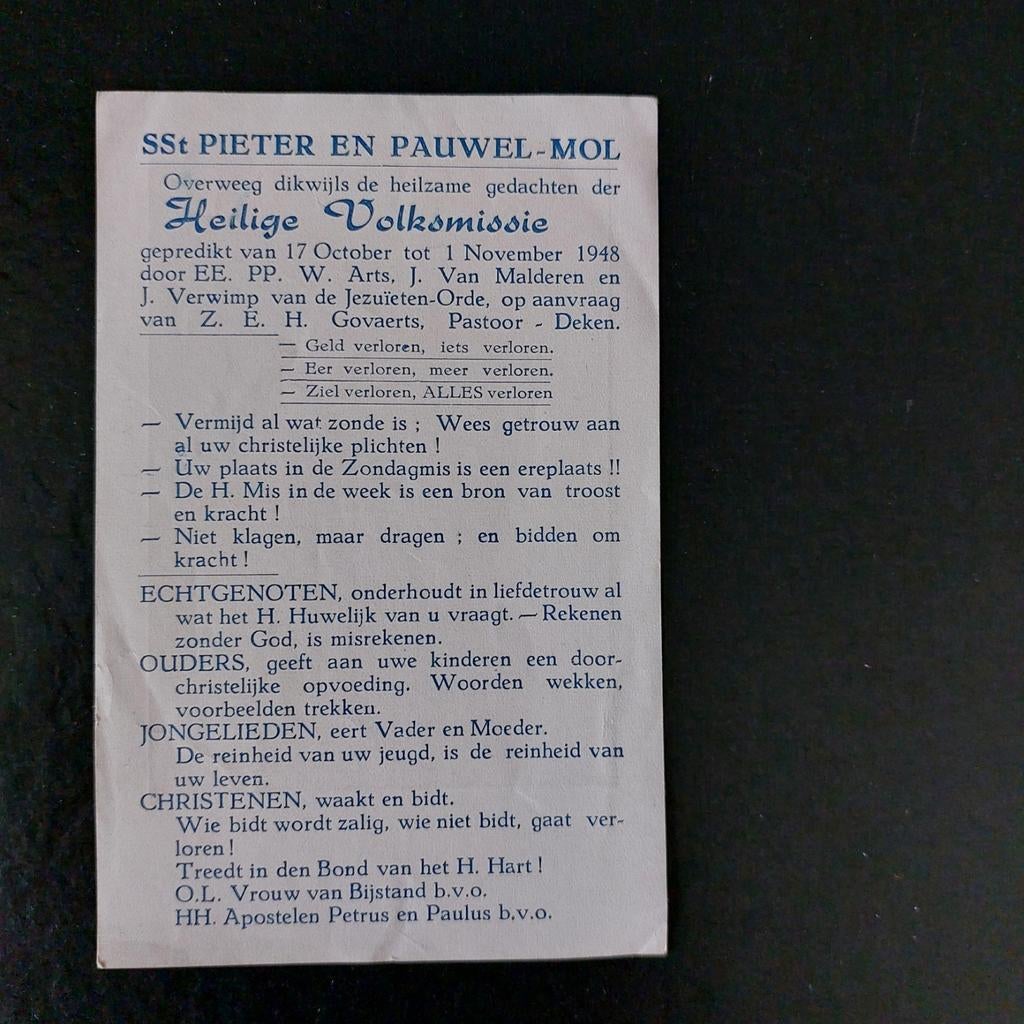 SSt PIETER EN PAUWEL-MOL
Overweeg dikwijls de heilzame gedachten der
Heilige Volksmissie
gepredikt van 17 October tot 1 November 1948
door EE. PP. W. Arts, J. Van Malderen en
J. Verwimp van de Jezuïeten-Orde, op aanvraag
van Z. E. H. Govaerts, Pastoor - Deken.
— Geld verloren, iets verloren.
— Eer verloren, meer verloren.
— Ziel verloren, ALLES verloren
— Vermijd al wat zonde is ; Wees getrouw aan
al uw christelijke plichten !
— Uw plaats in de Zondagmis is een ereplaats !!
— De H. Mis in de week is een bron van troost
en kracht !
— Niet klagen, maar dragen ; en bidden om
kracht !
ECHTGENOTEN, onderhoudt in liefdetrouw al
wat het H. Huwelijk van u vraagt. — Rekenen
zonder God, is misrekenen.
OUDERS, geeft aan uwe kinderen een door-
christelijke opvoeding. Woorden wekken,
voorbeelden trekken.
JONGELIEDEN, eert Vader en Moeder.
De reinheid van uw jeugd, is de reinheid van
uw leven.
CHRISTENEN, waakt en bidt.
Wie bidt wordt zalig, wie niet bidt, gaat ver-
loren !
Treedt in den Bond van het H. Hart !
O.L. Vrouw van Bijstand b.v.o.
HH. Apostelen Petrus en Paulus b.v.o.